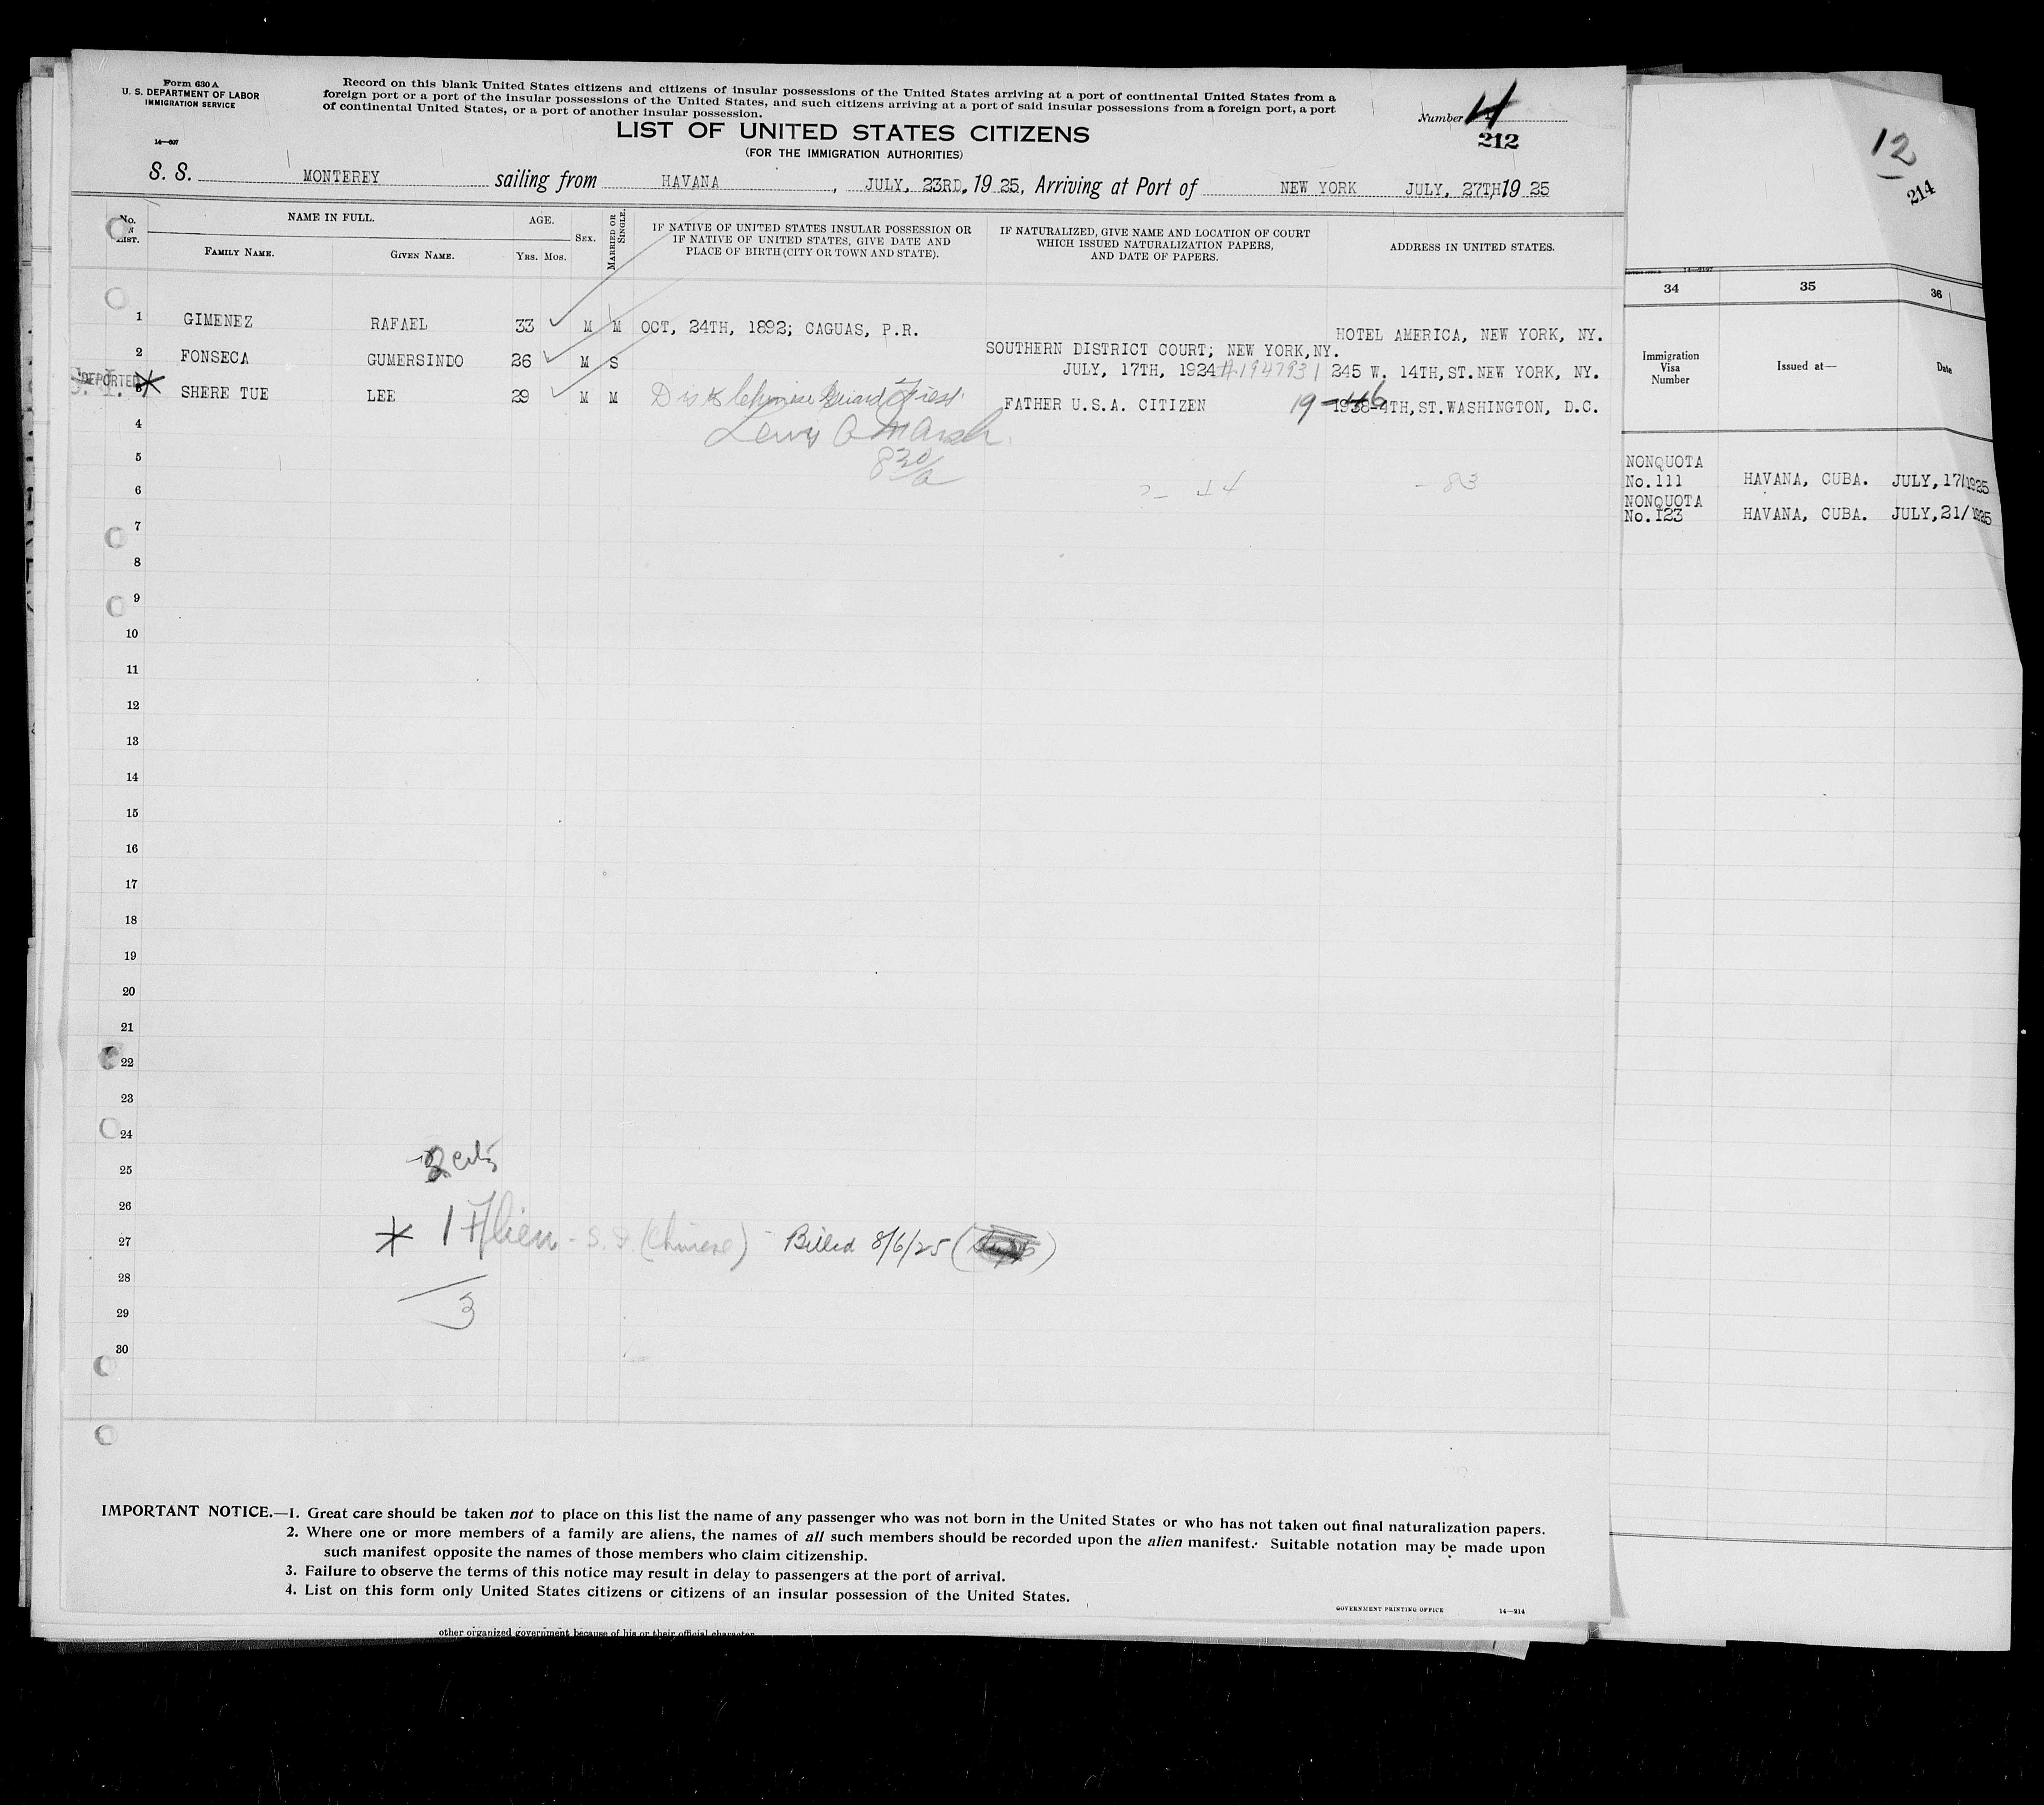 Form 630 A
U. S. DEPARTMENT OF LABOR
IMMIGRATION SERVICE
14—607
Record on this blank United States citizens and citizens of insular possessions of the United States arriving at a port of continental United States from a
foreign port or a port of the insular possessions of the United States, and such citizens arriving at a port of said insular possessions from a foreign port, a port
of continental United States, or a port of another insular possession.
LIST OF UNITED STATES CITIZENS
(FOR THE IMMIGRATION AUTHORITIES)
Number
212
S. S. MONTEREY sailing from HAVANA, JULY, 23RD, 1925, Arriving at Port of NEW YORK JULY, 27TH, 1925
No. LIST.
NAME IN FULL.
FAMILY NAME.
GIVEN NAME.
AGE.
YRS. MOS.
SEX.
MARRIED OR SINGLE.
IF NATIVE OF UNITED STATES INSULAR POSSESSION OR
IF NATIVE OF UNITED STATES, GIVE DATE AND
PLACE OF BIRTH (CITY OR TOWN AND STATE).
IF NATURALIZED, GIVE NAME AND LOCATION OF COURT
WHICH ISSUED NATURALIZATION PAPERS,
AND DATE OF PAPERS.
ADDRESS IN UNITED STATES.
1 GIMENEZ RAFAEL 33 M M OCT, 24TH, 1892; CAGUAS, P.R. HOTEL AMERICA, NEW YORK, NY.
2 FONSECA GUMERSINDO 26 M S SOUTHERN DISTRICT COURT; NEW YORK,NY.
JULY, 17TH, 1924 #1947931 245 W. 14TH,ST.NEW YORK, NY.
DEPORTED
3 SHERE TUE LEE 29 M M FATHER U.S.A. CITIZEN 1938-4TH,ST.WASHINGTON, D.C.
4
5
6
7
8
9
10
11
12
13
14
15
16
17
18
19
20
21
22
23
24
25
26
* 1 Alien - S. I. (Chinese) - Billed 8/6/25
27
28
3
29
30
IMPORTANT NOTICE.—1. Great care should be taken not to place on this list the name of any passenger who was not born in the United States or who has not taken out final naturalization papers.
2. Where one or more members of a family are aliens, the names of all such members should be recorded upon the alien manifest. Suitable notation may be made upon
such manifest opposite the names of those members who claim citizenship.
3. Failure to observe the terms of this notice may result in delay to passengers at the port of arrival.
4. List on this form only United States citizens or citizens of an insular possession of the United States.
GOVERNMENT PRINTING OFFICE 14—214
other organized government because of his or their official character
12
214
14—2197
34 35 36
Immigration
Visa
Number
Issued at—
Date
NONQUOTA
No.111 HAVANA, CUBA. JULY,17/1925
NONQUOTA
No.123 HAVANA, CUBA. JULY,21/1925